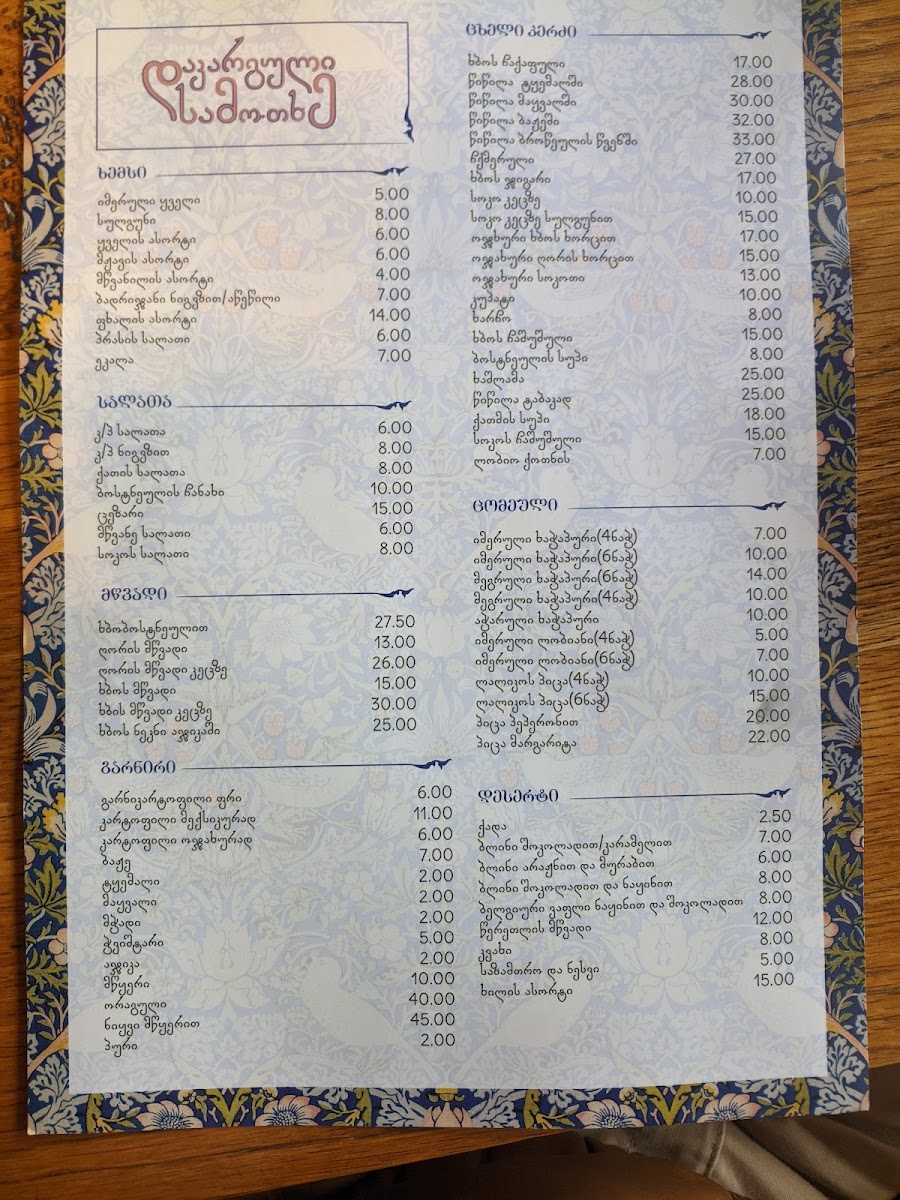 დაკარგული
სამოთხე
ხემსი
იმერული ყველი 5.00
სულგუნი 8.00
ყველის ასორტი 6.00
მჟავის ასორტი 6.00
მწვანილის ასორტი 4.00
ბადრიჯანი ნიგვზით/აწეწილი 7.00
ფხალის ასორტი 14.00
პრასის სალათი 6.00
ეკალა 7.00
სალათა
კ/პ სალათა 6.00
კ/პ ნიგვზით 8.00
ქათის სალათა 8.00
ბოსტნეულის ჩანახი 10.00
ცეზარი 15.00
მწვანე სალათი 6.00
სოკოს სალათი 8.00
მწვადი
ხბობოსტნეულით 27.50
ღორის მწვადი 13.00
ღორის მწვადი კეცზე 26.00
ხბოს მწვადი 15.00
ხბის მწვადი კეცზე 30.00
ხბოს ნეკნი აჯიკაში 25.00
გარნირი
გარნიკარტოფილი ფრი 6.00
კარტოფილი მექსიკურად 11.00
კარტოფილი ოჯახურად 6.00
ბაჟე 7.00
ტყემალი 2.00
მაყვალი 2.00
მჭადი 2.00
ჭვიშტარი 5.00
აჯიკა 2.00
მწყერი 10.00
ორაგული 40.00
ნიყვი მწყერით 45.00
პური 2.00
ცხელი კერძი
ხბოს ჩაქაფული 17.00
წიწილა ტყემალში 28.00
წიწილა მაყვალში 30.00
წიწილა ბაჟეში 32.00
წიწილა ბროწეულის წვენში 33.00
ჩქმერული 27.00
ხბოს ჯიგარი 17.00
სოკო კეცზე 10.00
სოკო კეცზე სულგუნით 15.00
ოჯახური ხბოს ხორცით 17.00
ოჯახური ღორის ხორცით 15.00
ოჯახური სოკოთი 13.00
კუპატი 10.00
ხარჩო 8.00
ხბოს ჩაშუშული 15.00
ბოსტნეულის სუპი 8.00
ხაშლამა 25.00
წიწილა ტაბაკად 25.00
ქათმის სუპი 18.00
სოკოს ჩაშუშული 15.00
ლობიო ქოთნის 7.00
ცომეული
იმერული ხაჭაპური(4ნაჭ) 7.00
იმერული ხაჭაპური(6ნაჭ) 10.00
მეგრული ხაჭაპური(6ნაჭ) 14.00
მეგრული ხაჭაპური(4ნაჭ) 10.00
აჭარული ხაჭაპური 10.00
იმერული ლობიანი(4ნაჭ) 5.00
იმერული ლობიანი(6ნაჭ) 7.00
ლალიკოს პიცა(4ნაჭ) 10.00
ლალიკოს პიცა(6ნაჭ) 15.00
პიცა პეპერონით 20.00
პიცა მარგარიტა 22.00
დესერტი
ქადა 2.50
ბლინი შოკოლადით/კარამელით 7.00
ბლინი არაჟნით და მურაბით 6.00
ბლინი შოკოლადით და ნაყინით 8.00
ბელგიური ვაფლი ნაყინით და შოკოლადით 8.00
წერეთლის მწვადი 12.00
კვახი 8.00
საზამთრო და ნესვი 5.00
ხილის ასორტი 15.00